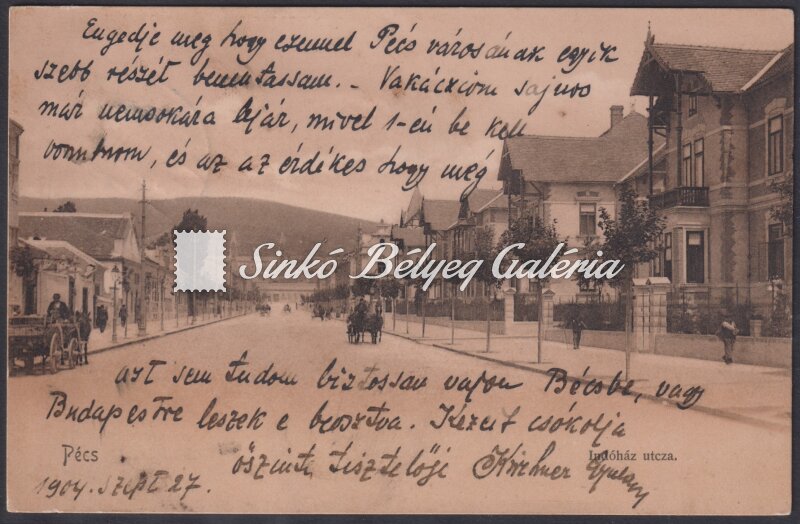 Engedje meg hogy ezennel Pécs városának egyik
szebb részét bemutassam. - Vakáczióm sajnos
már nemsokára lejár, mivel 1-én be kell
vonulnom, és az az érdekes hogy még
Sinkó Bélyeg Galéria
azt sem tudom biztossan vajon Bécsbe, vagy
Budapestre leszek e beosztva. Kezeit csókolja
őszinte tisztelője Kirchner Gyula
Pécs
Indóház utcza.
1904. szept 27.